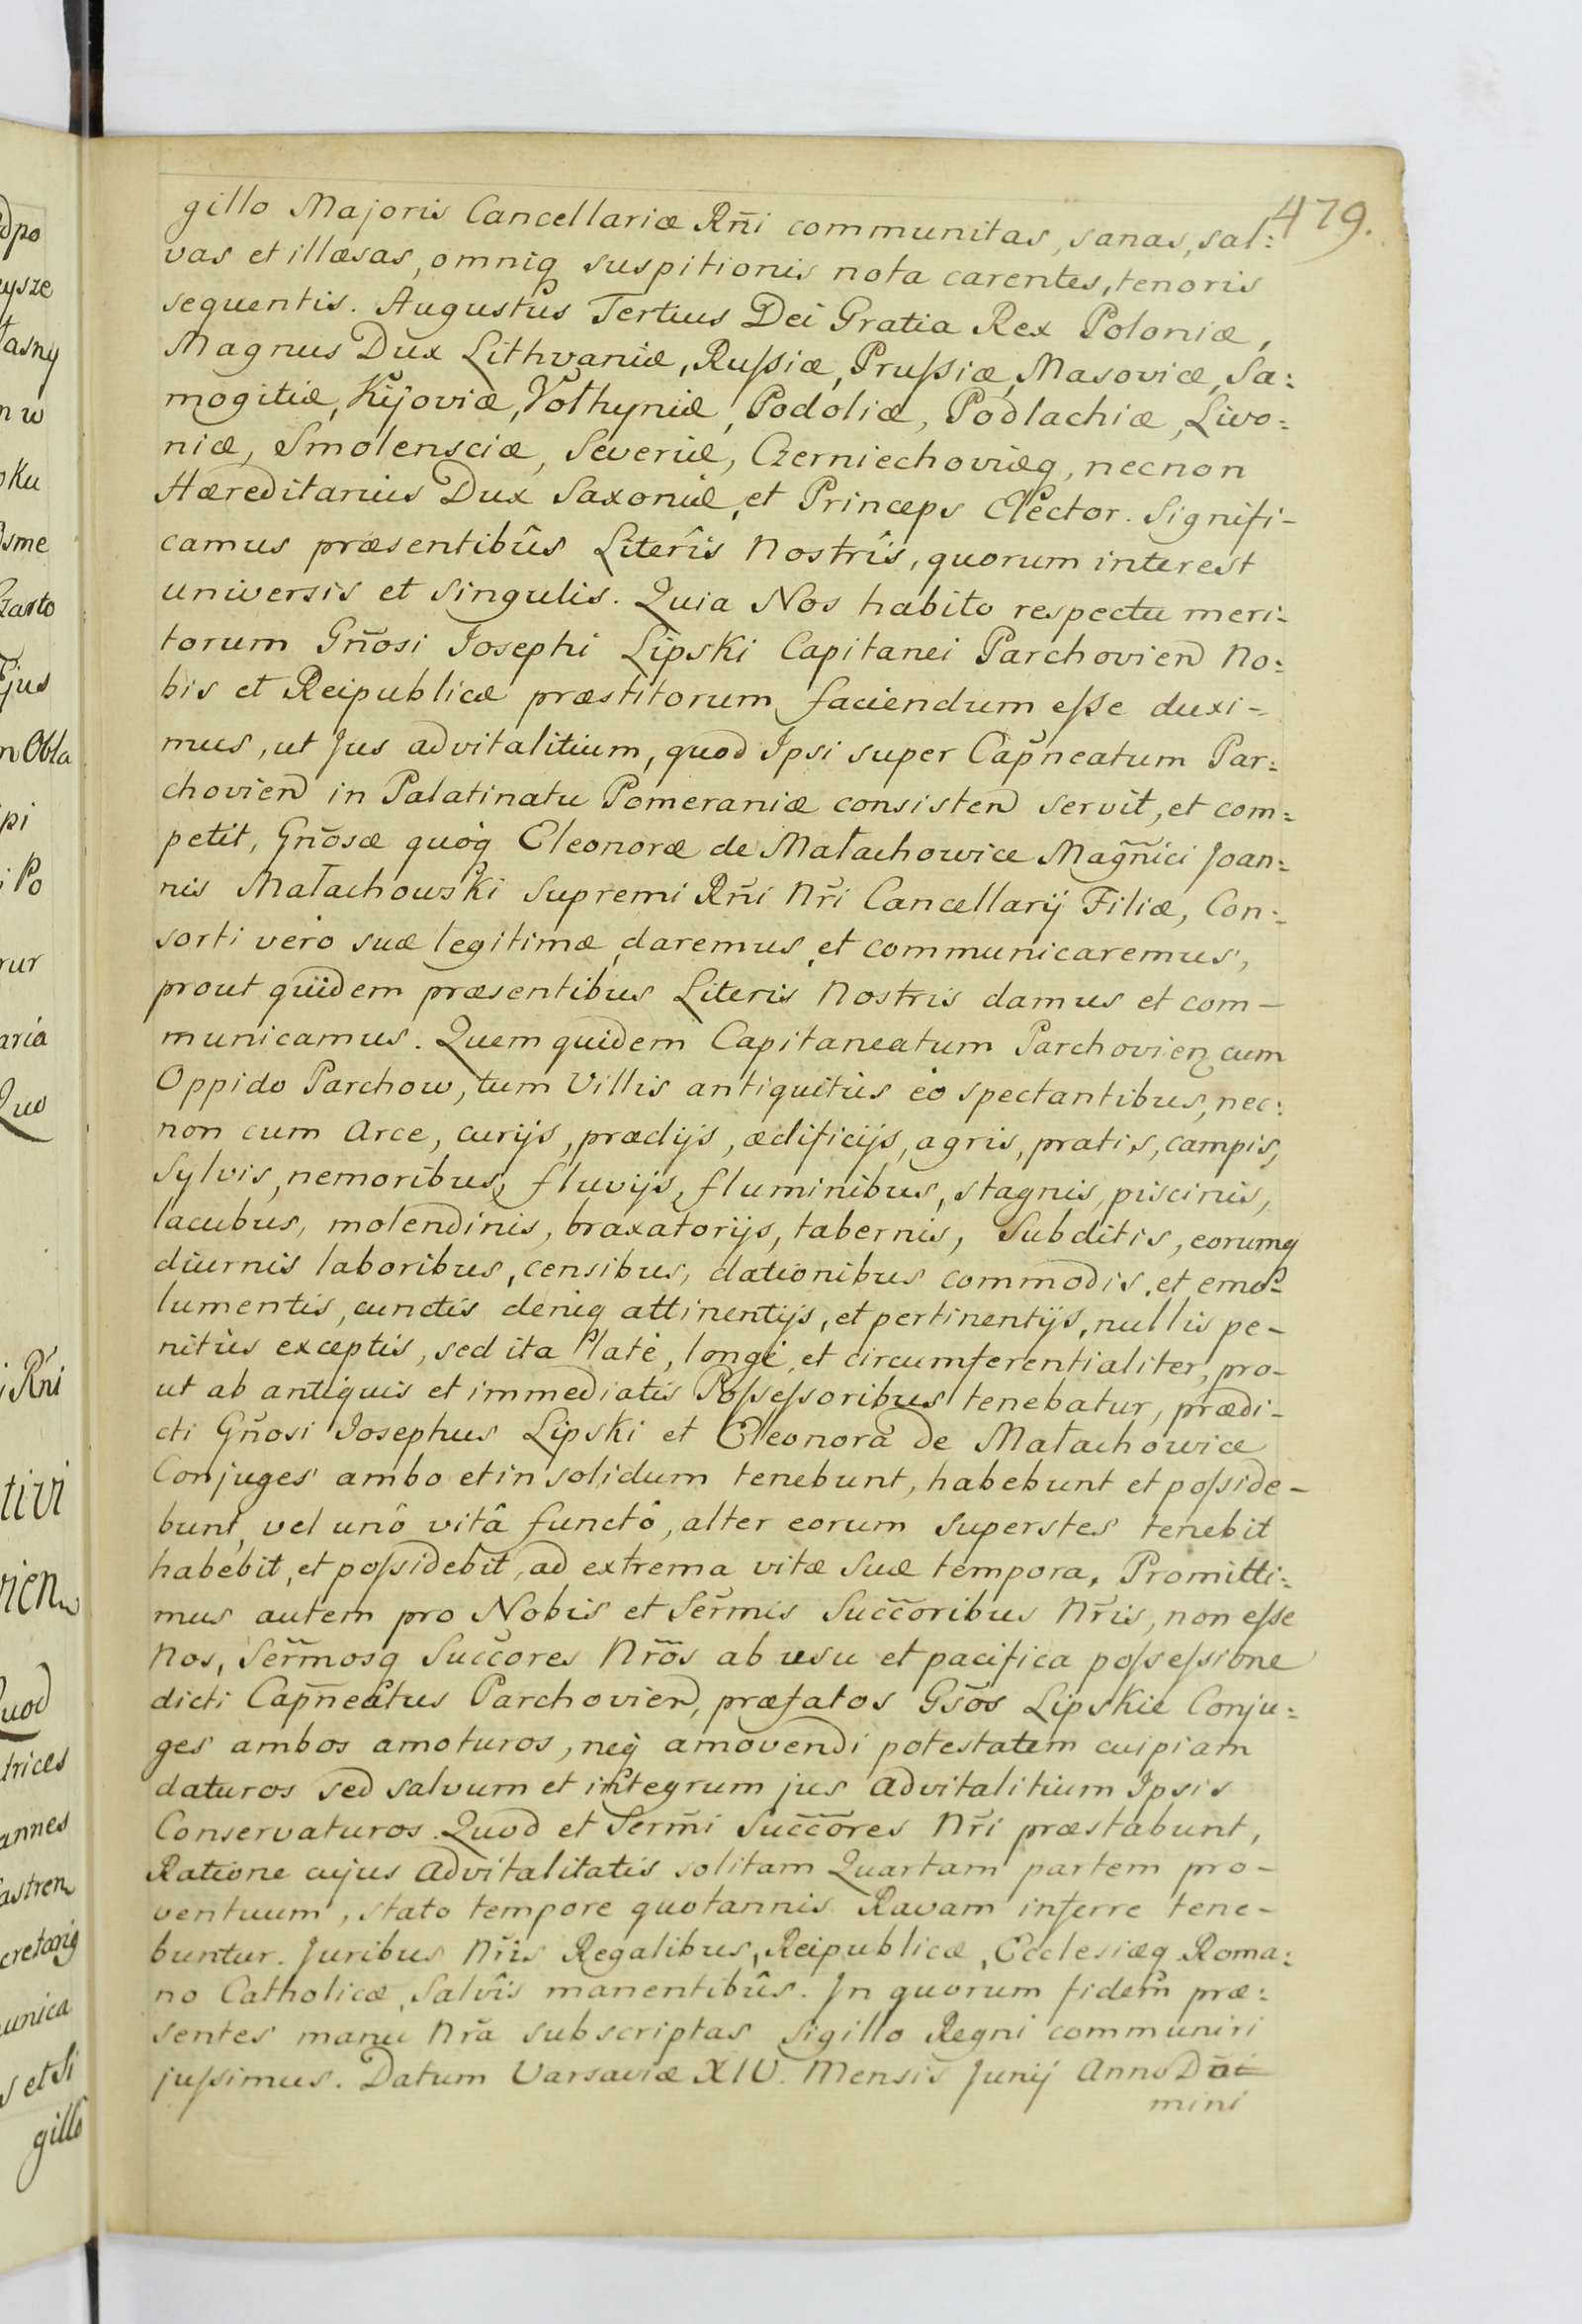 479.
gillo Majoris Cancellariæ Rñi communitas, sanas, sal:
vas et illæsas, omniq suspitionis nota carentes, tenoris
sequentis. Augustus Tertius Dei Gratia Rex Poloniæ,
Magnus Dux Lithvaniæ, Rußiæ, Prußiæ, Masoviæ, Sa:
mogitiæ, Kijoviæ, Vołhyniæ, Podoliæ, Podlachiæ, Livo:
niæ, Smolensciæ, Severiæ, Czerniechoviæq, necnon
Hæreditarius Dux Saxoniæ, et Princeps Elector. Signifi-
camus præsentibûs Literîs Nostrîs, quorum interest
universis et singulis. Quia Nos habito respectu meri-
torum Gñosi Josephi Lipski Capitanei Parchovien No:
bis et Reipublicæ præstitorum faciendum eße duxi-
mus, ut Jus advitalitium, quod Ipsi super Capñeatum Par:
chovien in Palatinatu Pomeraniæ consisten servit, et com:
petit, Gñosæ quoq Eleonoræ de Małachowice Magñici Joan:
nis Małachowski Supremi Rñi Nr̃i Cancellarij Filiæ, Con:
sorti vero suæ legitimæ daremus et communicaremus,
prout quidem præsentibus Literis Nostris damus et com-
municamus. Quem quidem Capitaneatum Parchovien cum
Oppido Parchow, tum Villis antiquitùs eò spectantibus, nec:
non cum Arce, curijs, prædijs, ædificijs, agris, pratis, campis,
Sylvis, nemoribus, fluvijs, fluminibus, stagnis, piscinis,
lacubus, molendinis, braxatorijs, tabernis, Subditis, eorumq
diurnis laboribus, censibus, dationibus commodis, et emo-
lumentis, cunctis deniq attinentijs, et pertinentijs, nullis pe-
nitùs exceptis, sed ita latè, longè, et circumferentialiter, pro-
ut ab antiquis et immediatis Poßeßoribus tenebatur, prædi-
cti Gñosi Josephus Lipski et Eleonora de Małachowice
Conjuges ambo et in solidum tenebunt, habebunt et poßide-
bunt, vel unô vitâ functô, alter eorum superstes tenebit
habebit, et poßidebit, ad extrema vitæ suæ tempora. Promitti:
mus autem pro Nobis et Serm̃is Succ̃oribus Nr̃is, non eße
Nos, Serm̃osq Succ̃ores Nr̃os ab usu et pacifica poßeßione
dicti Capñeatus Parchovien, præfatos Gs̃os Lipskie Conju:
ges ambos amoturos, neq amovendi potestatem cuipiam
daturos sed salvum et integrum jus advitalitium Ipsis
Conservaturos. Quod et Serm̃i Succ̃ores Nr̃i præstabunt,
Ratione cujus advitalitatis solitam Quartam partem pro-
ventuum, stato tempore quotannis Ravam inferre tene-
buntur. Juribus Nr̃is Regalibus, Reipublicæ, Ecclesiæq Roma:
no Catholicæ, Salvîs manentibûs. In quorum fidem præ:
sentes manu Nr̃a subscriptas Sigillo Regni communiri
jußimus. Datum Varsaviæ XIV. Mensis Junij Anno Do
mini